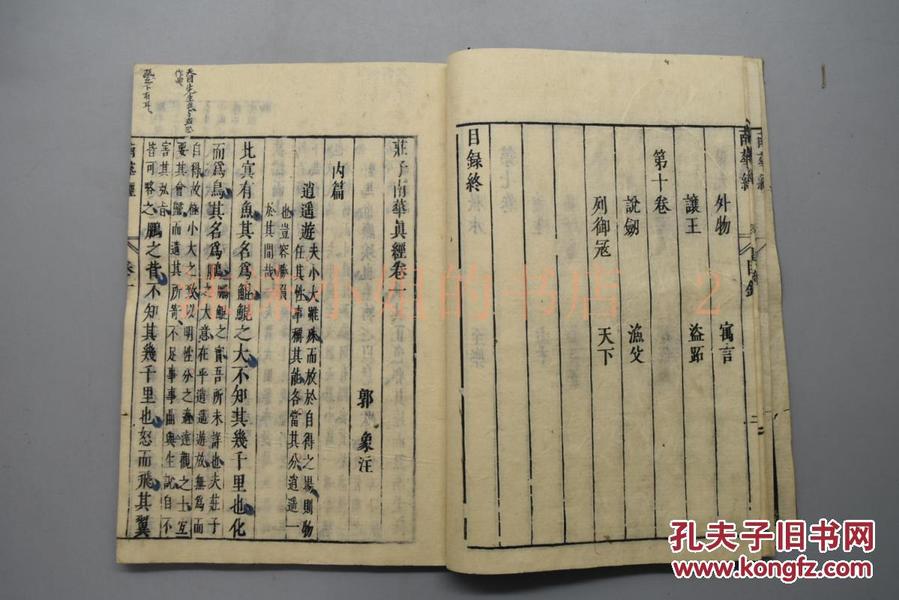 外物 寓言
讓王 盜跖
第十卷
說劒 漁父
列御寇 天下
目録終
莊子南華真經卷一
郭 象注
内篇
逍遥遊 夫小大雖殊而放於自得之塲則物
任其性事稱其能各當其分逍遥一
也豈容勝負
於其間哉
北冥有魚其名為鯤鯤之大不知其幾千里也化
而為鳥其名為鵬 鵬鯤之實吾所未詳也夫莊子
之大意在乎逍遥遊放無為而
自得故極小大之致以明性分之適達觀之士宜
要其會歸而遺其所寄不足事事曲與生說自不
害其弘旨
皆可略之 鵬之背不知其幾千里也怒而飛其翼
南華經
卷一
南華經
目録
二
谈小姐的书店 2
孔夫子旧书网
www.kongfz.com